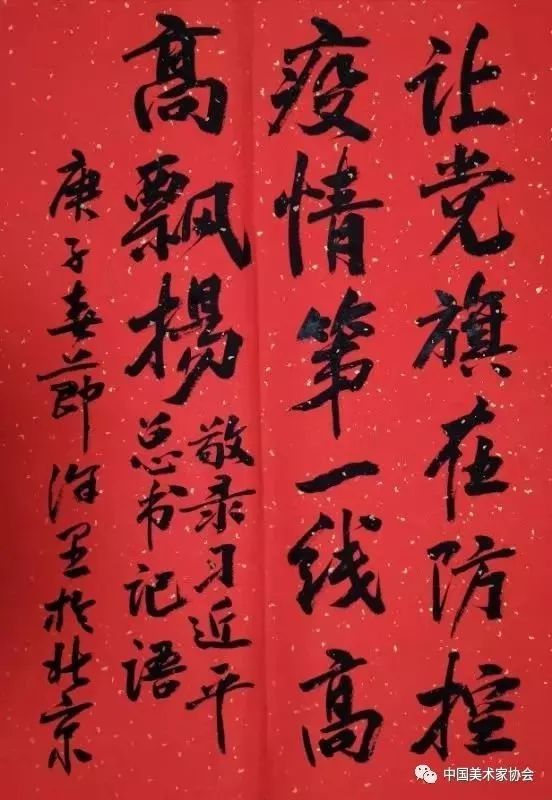 让党旗在防控
疫情第一线高
高飘扬
敬录习近平
总书记语
庚子春节徐里于北京
中国美术家协会